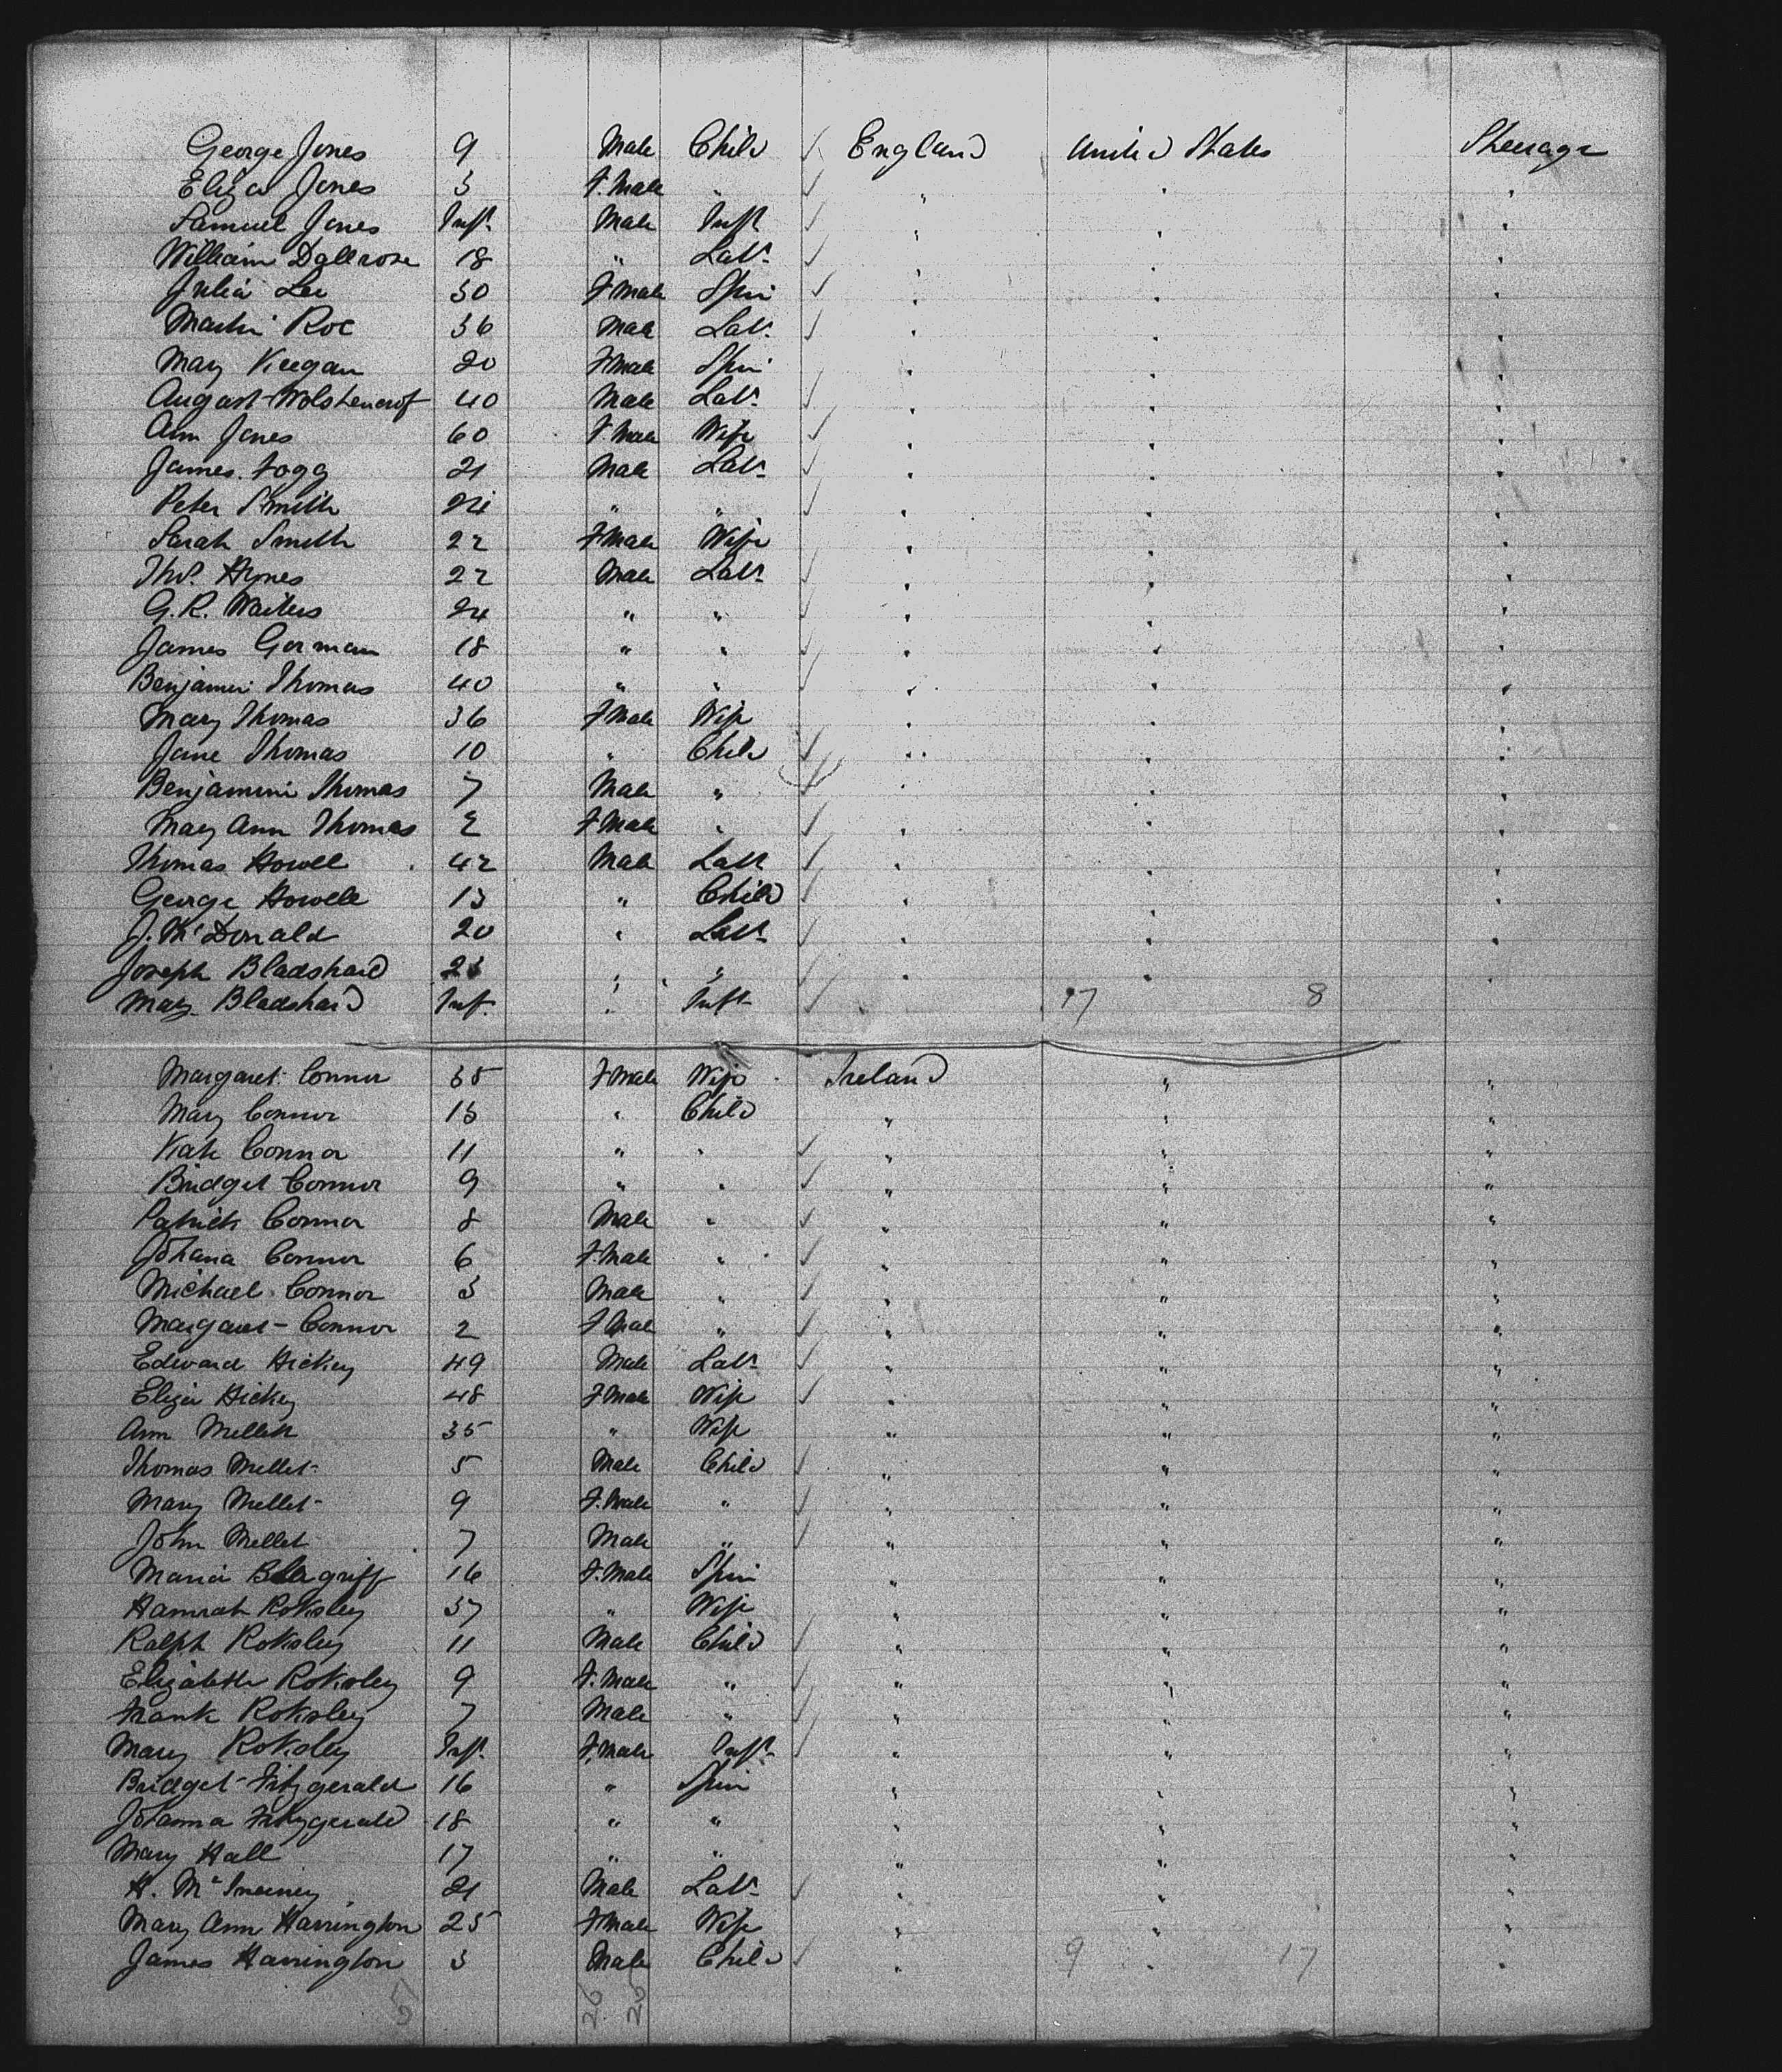 George Jones 9 Male Child ✓ England United States Steerage
Eliza Jones 3 F.Male " ✓ " " "
Samuel Jones Inft. Male Inft ✓ " " "
William Dallrose 18 " Labr. ✓ " " "
Julia Lee 30 F Male Spin ✓ " " "
Martin Roe 36 Male Labr. ✓ " " "
Mary Keegan 20 F Male Spin " " "
August Wolstencrof 40 Male Labr. ✓ " " "
Ann Jones 60 F.Male Wife ✓ " " "
James Fogg 21 Male Labr. ✓ " " "
Peter Smith 24 " " ✓ " " "
Sarah Smith 22 F Male Wife " " "
Thos. Hynes 22 Male Labr. ✓ " " "
G.R. Waiters 24 " " ✓ " " "
James Gorman 18 " " ✓ " " "
Benjamin Thomas 40 " " ✓ " " "
Mary Thomas 36 F Male Wife " " "
Jane Thomas 10 " Child ✓ " " "
Benjamin Thomas 7 Male " ✓ " " "
Mary Ann Thomas 2 F Male " ✓ " " "
Thomas Howell 42 Male Labr ✓ " " "
George Howell 13 " Child ✓ " " "
J. McDonald 20 " Labr. ✓ " " "
Joseph Bladshard 23 " " ✓ " " "
Mary Bladshard Inf. " Inft ✓ 17 8
Margaret Connor 35 F Male Wife Ireland " "
Mary Connor 13 " Child " " "
Kate Connor 11 " " ✓ " " "
Bridget Connor 9 " " ✓ " " "
Patrick Connor 8 Male " ✓ " " "
Johana Connor 6 F.Male " ✓ " " "
Michael Connor 3 Male " ✓ " " "
Margaret Connor 2 F Male " ✓ " " "
Edward Hickey 49 Male Labr. ✓ " " "
Eliza Hickey 48 F Male Wife ✓ " " "
Ann Mellet 35 " Wife " " "
Thomas Mellet 5 Male Child ✓ " " "
Mary Mellet 9 F.Male " ✓ " " "
John Mellet 7 Male " ✓ " " "
Maria 16 F.Male Spin " " "
Hannah Roksley 37 " Wife " " "
Ralph Roksley 11 Male Child ✓ " " "
Elizabeth Roksley 9 F.Male " ✓ " " "
Frank Roksley 7 Male " ✓ " " "
Mary Roksley Inft. F.Male Inft. ✓ " " "
Bridget Fitzgerald 16 " Spin " " "
Johanna Fitzgerald 18 " " " " "
Mary Hall 17 " " " " "
H. McInerney 21 Male Labr. ✓ " " "
Mary Ann Harrington 25 F Male Wife " " "
James Harrington 3 Male Child ✓ " 9 " 17 "
26 26